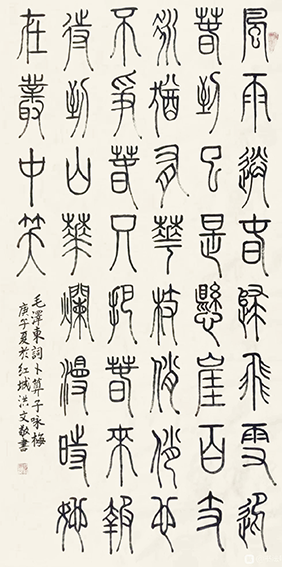 風雨送春歸飛雪迎
春到已是懸崖百丈
冰猶有華枝俏俏也
不爭春只把春來報
待到山華爛漫時她
在叢中笑
毛澤東詞卜算子咏梅
庚子夏於紅城洪文敬書